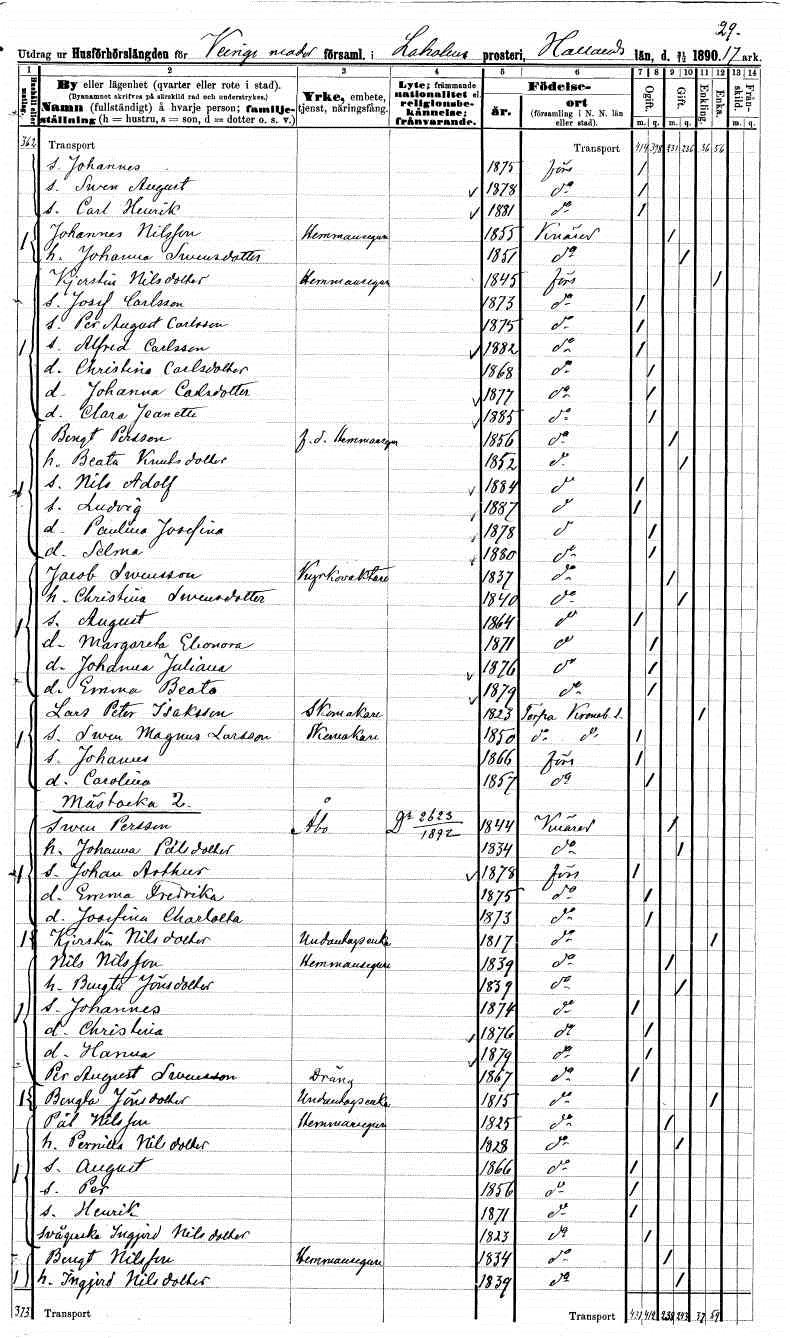 29.
Utdrag ur Husförhörslängden för Veinge moder församl. i Laholms prosteri, Hallands län, d. 31/12 1890. 17 ark.
1 2 3 4 5 6 7 8 9 10 11 12 13 14
By eller lägenhet (qvarter eller rote i stad). (Bynamnet skrifves på särskild rad och understrykes.) Namn (fullständigt) å hvarje person; familjeställning (h = hustru, s = son, d = dotter o. s. v.) Yrke, embete, tjenst, näringsfång. Lyte; främmande nationalitet el. religionsbekännelse; frånvarande. Födelse- år. ort (församling i N. N. län eller stad). Ogift. m. q. Gift. m. q. Enkling. Enka. Frånskild. m. q.
362 Transport Transport 414 398 231 236 36 56
s. Johannes 1875 förs /
s. Swen August v 1878 do /
s. Carl Henrik v 1881 do /
1 Johannes Nilsson Hemmansegare 1855 Knäred /
h. Johanna Swensdotter 1851 do /
Kjerstin Nilsdotter Hemmansegare 1845 förs /
s. Josef Carlsson 1873 do /
s. Per August Carlsson 1875 do /
1 s. Alfred Carlsson v 1882 do /
d. Christina Carlsdotter 1868 do /
d. Johanna Carlsdotter v 1877 do /
d. Clara Jeanette v 1885 do /
Bengt Persson f. d. Hemmansegare 1856 do /
h. Beata Knutsdotter 1852 do /
1 s. Nils Adolf v 1884 do /
s. Ludvig v 1887 do /
d. Paulina Josefina v 1878 do /
d. Selma v 1880 do /
Jacob Swensson Kyrkovaktare 1837 do /
h. Christina Swensdotter 1840 do /
1 s. August 1864 do /
d. Margareta Eleonora 1871 do /
d. Johanna Juliana v 1876 do /
d. Emma Beata v 1879 do /
Lars Peter Isaksson Skomakare 1823 Torpa Kronob. l. /
1 s. Swen Magnus Larsson Skomakare 1850 do do /
s. Johannes 1866 förs /
d. Carolina 1857 do /
Mästocka 2.
Swen Persson Åbo Dt 2623/1892 1844 Knäred /
h. Johanna Pålsdotter 1834 do /
1 s. Johan Arthur v 1878 förs /
d. Emma Fredrika 1875 do /
d. Josefina Charlotta 1873 do /
1 Kjerstin Nilsdotter Undantagsenka 1817 do /
Nils Nilsson Hemmansegare 1839 do /
h. Bengta Jönsdotter 1839 do /
1 s. Johannes 1874 do /
d. Christina v 1876 do /
d. Hanna v 1879 do /
Per August Swensson Dräng 1867 do /
1 Bengta Jönsdotter Undantagsenka 1815 do /
Pål Nilsson Hemmansegare 1825 do /
h. Pernilla Nilsdotter 1828 do /
1 s. August 1866 do /
s. Per 1856 do /
s. Henrik 1871 do /
Svägerska Ingjerd Nilsdotter 1823 do /
Bengt Nilsson Hemmansegare 1834 do /
1 h. Ingjerd Nilsdotter 1839 do /
373 Transport Transport 431 412 238 243 37 59